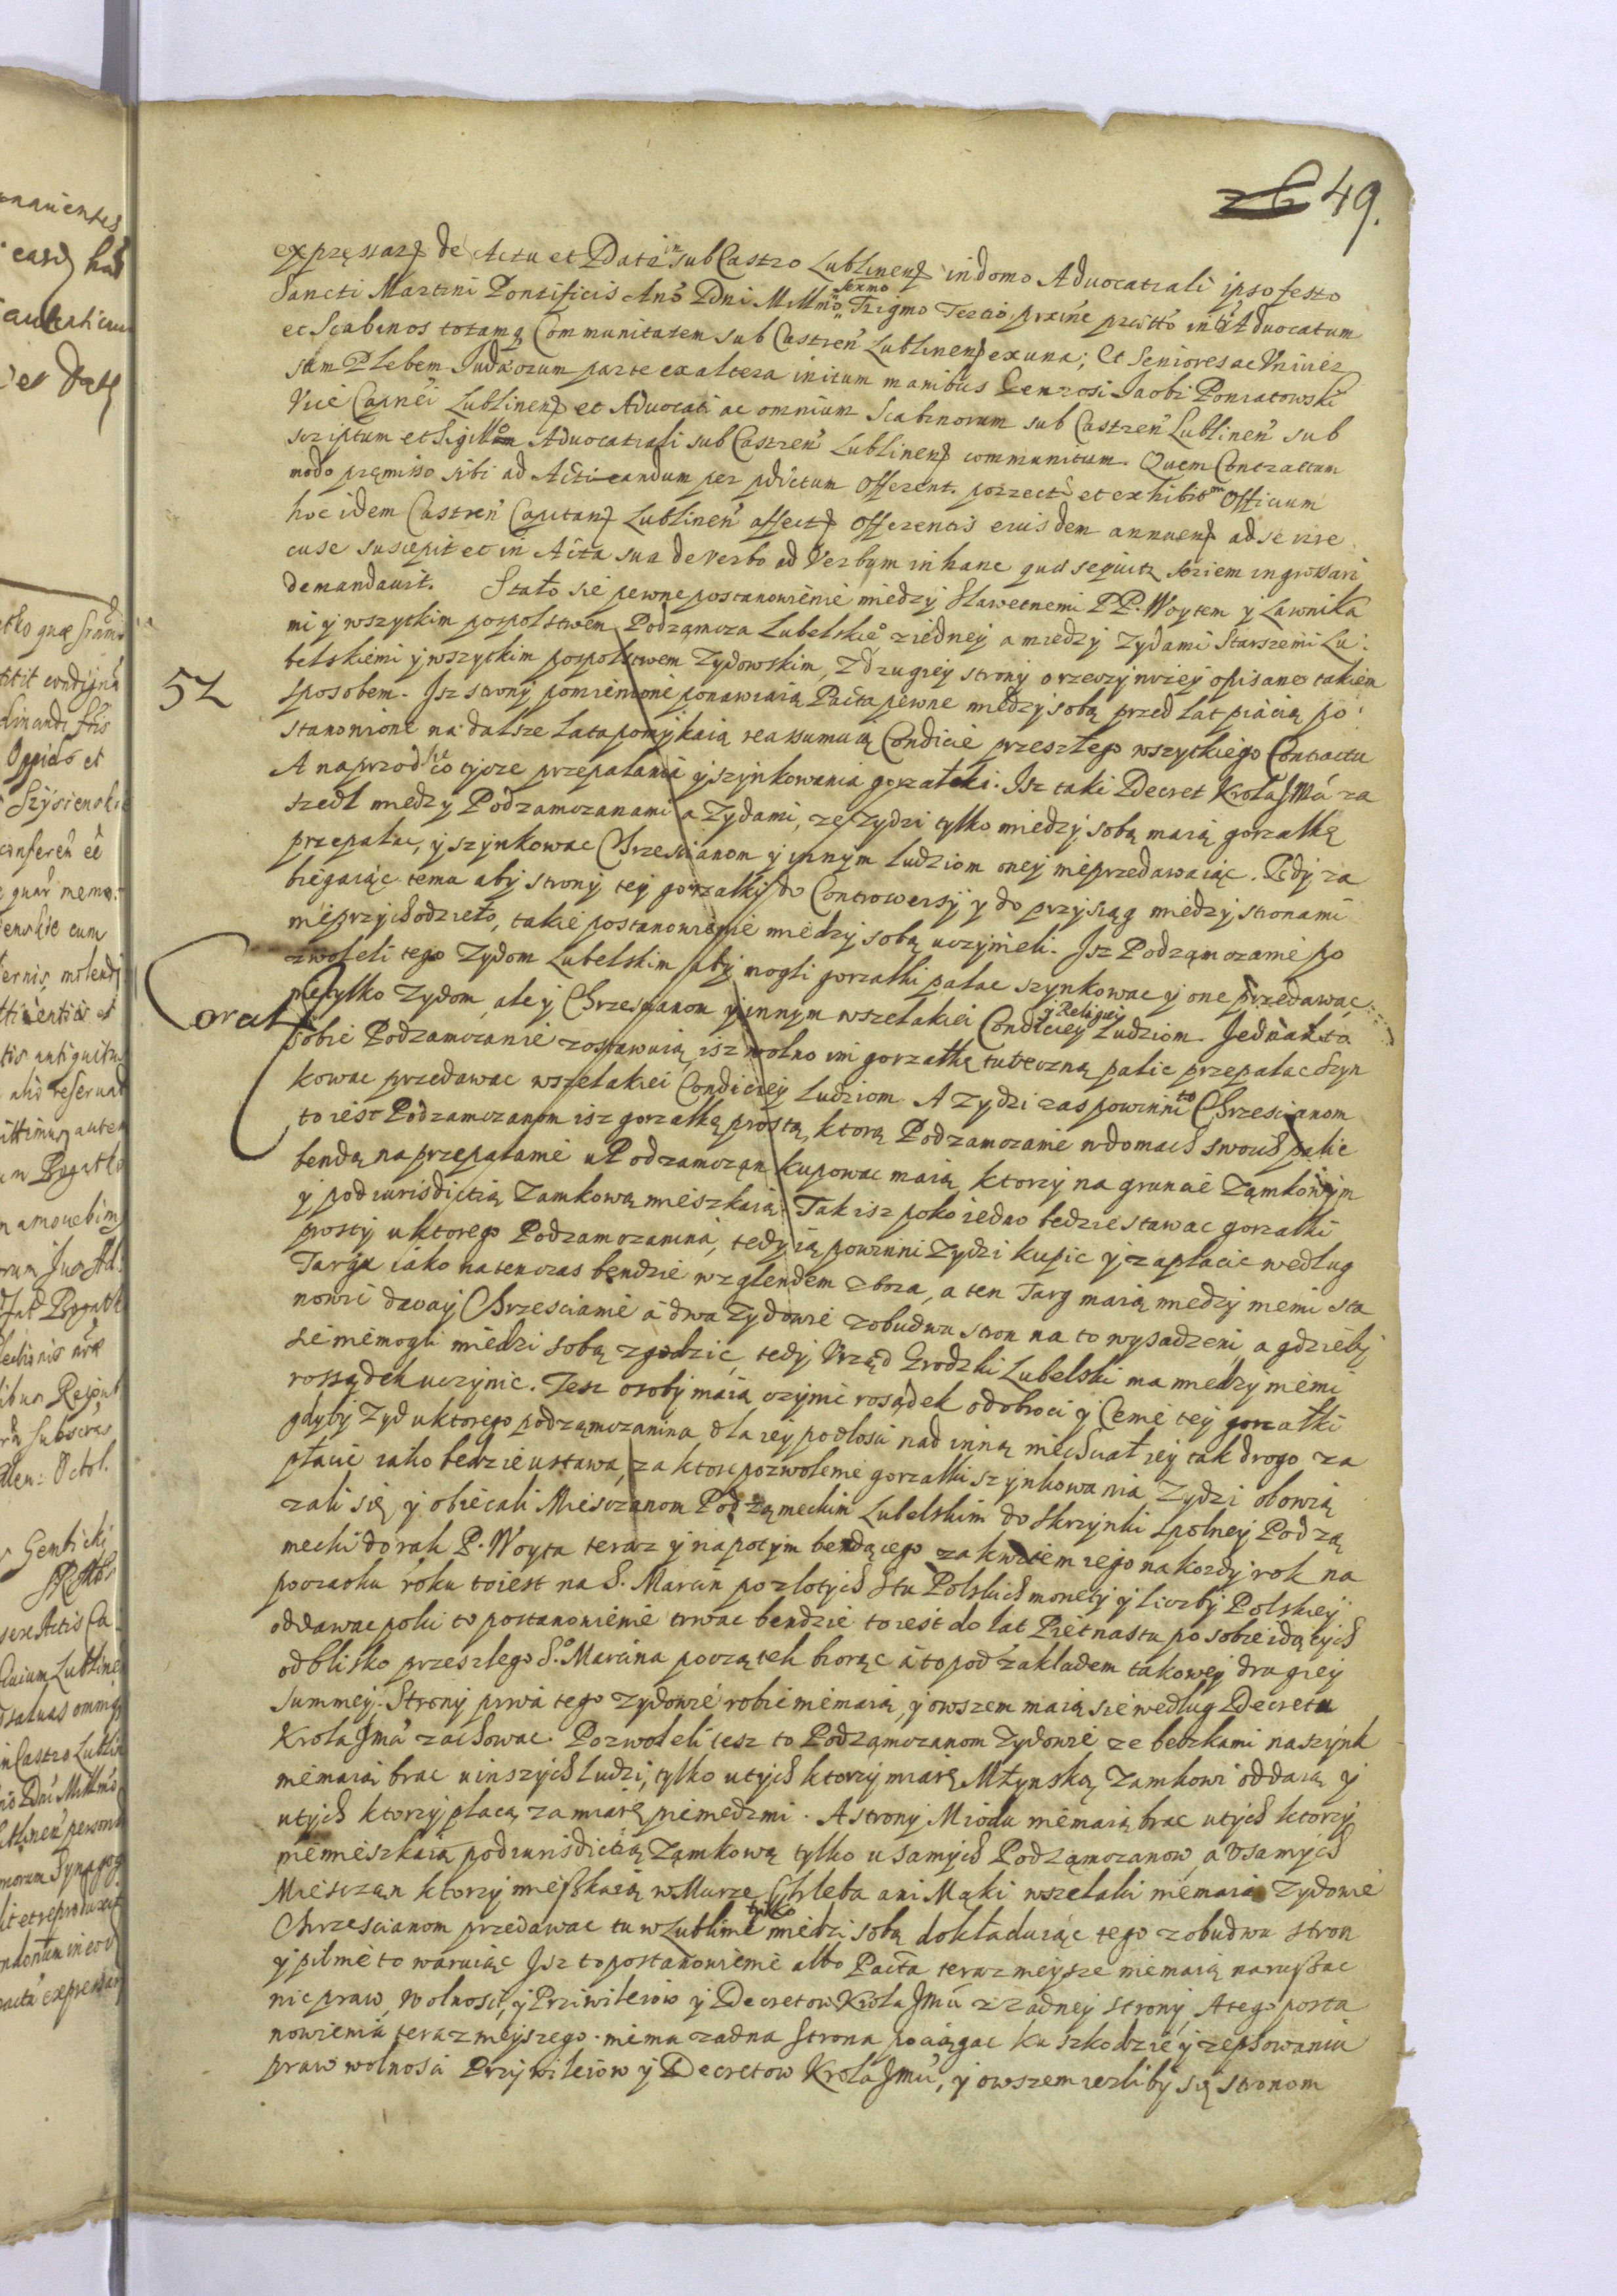 49.
expressarũ de Actu et Data in sub Castro Lublinen in domo Advocatiali ipso festo
Sancti Martini Pontificis Anõ Dni Millmõ Sexmo Trigmo Tertio proxime prãetto inter Advocatum
et Scabinos totamq Communitatem sub Castren Lublinen ex una; Et Seniores ac Univer
sam Plebem Judæorum parte ex altera initum manibus Generosi Jacobi Poniatowski
Vice Capnei Lublinen et Advocati ac omnium Scabinorum sub Castren Lublinen sub
scriptum et Sigillo Advocatiali sub Castren Lublinen communitum. Quem Contractum
modo præmisso sibi ad Acticandum per pdictum Offerent. porrect et exhibit Officium
hoc idem Castren Capitan Lublinen affect Offerentis eiusdem annuen ad se rite
suscepit et in Acta sua de verbo ad Verbum in hanc quæ sequitr seriem ingrossari
demandavit. Stało sie pewne postanowienie miedzy Sławetnemi PP. Woytem y Ławnika
mi y wszytkim pospolstwem Podzamcza Lubelskieo z iedney a miedzy Zydami Starszemi Lu
belskiemi y wszytkim pospolstwem Zydowskim, z drugiey strony o rzeczy nizey opisane takiem
52
sposobem. Jsz strony pomienione ponawiaią Pacta pewne miedzy sobą przed lat piącią po
stanowione na dalsze lata pomykaią reassumuią Condicie przeszłego wszytkiego Contractu
A naprzod co tycze przepalania y szynkowania gorzałki. Jsz taki Decret Krola JMci za
szedł miedzy Podzamczanami a Zydami, ze Zydzi tylko miedzy sobą maią gorzałkę
przepalac, y szynkowac Chrzescianom y innym ludziom oney nieprzedawaiąc. Tedy za
biegaiąc temu aby strony tey gorzałki do Controwersÿ y do przysiąg miedzy stronami
nieprzychodzieło, takie postanowienie miedzy sobą uczynieli. Jsz Podzamczanie po
zwoleli tego Zydom Lubelskim aby mogli gorzałki palac szynkowac y one przedawac
nietylko Zydom, ale y Chrzescianom y innym wszelakiei Condiciey y Religiey Ludziom. Jednak to
sobie Podzamczanie zostawuią, isz wolno im gorzałkę tuteczną palic przepalac Szyn
kowac przedawac wszelakiei Condiciey ludziom A Zydzi zas powinni to Chrzescianom
to iest Podzamczanom isz gorzałkę prostą, ktorą Podzamczanie w domach swoich palic
bendą na przepalanie u Podzamczan kupowac maią ktorzy na gruncie Zamkowym
y pod iurisdictią Zamkową mieszkaią. Tak isz poko iedno bedzie stawac gorzałki
prosty u ktorego Podzamczanina, tedy ią powinni Zydzi kupic y zapłacic według
Targu iako na ten czas bendzie wzglendem zboza, a ten Targ maią miedzy niemi sta
nowic dwaiy Chrzescianie a dwa Zydowie z obudwu stron na to wysadzeni, a gdzieby
sie niemogli miedzi sobą zgodzic, tedy Urząd Grodzki Lubelski ma miedzy niemi
rossądek uczynic. Tesz osoby maią czynic rosądek o dobroci y Cenie tey gorzałki
gdyby Zyd u ktorego podzamczanina dla iey podłosci nad inną niechciał iey tak drogo za
płacic iako bedzie ustawa, za ktore pozwolenie gorzałki szynkowania Zydzi obowią
zali się y obiecali Miesczanom Podzameckim Lubelskim do Skrzynki spolney Podza
mecki do rak P. Woyta teraz y napotym bendącego za kwitem iego na kozdy rok na
początku roku to iest na S. Marcin po złotych Stu Polskich monety y liczby Polskiey
oddawac poki to postanowienie trwac bendzie to iest do lat Pietnastu po sobie idących
od blisko przeszłego So Marcina początek biorąc a to pod zakładem takowey drugiey
Summey. Strony piwa tego Zydowie robic niemaią, y owszem maią sie według Decretu
Krola Jmci zachowac. Pozwoleli tesz to Podzamczanom Zydowie ze beczkami na szynk
niemaią brac u inszych ludzi, tylko u tych ktorzy miarę Młynską Zamkowi oddaią y
u tych ktorzy płacą za miarę pieniedzmi. A strony Miodu niemaią brac u tych ktorzy
niemieszkaią pod iurisdictią Zamkową tylko u samych Podzamczanow, a u samych
Miesczan ktorzy mieszkaią w Murze Chleba ani Mąki wszelaki niemaią Zydowie
Chrzescianom przedawac tu w Lublinie tylko miedzi sobą dokładaiąc tego z obudwu stron
y pilnie to waruiąc Jsz to postanowienie albo Pacta teraznieysze niemaią naruszac
nic praw, Wolnosci, y Przywileiow y Decretow Krola Jmci z zadney strony, A tego posta
nowienia teraznieyszego niema zadna Strona pociągac ku szkodzie y zepsowaniu
praw wolnosci Przywileiow y Decretow Krola Jmci, y owszem iezliby się stronom